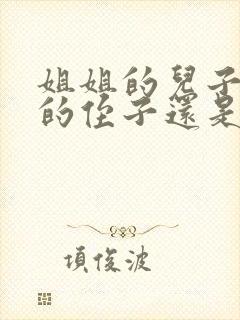 姐姐的兒子
的侄子還是
項俊波